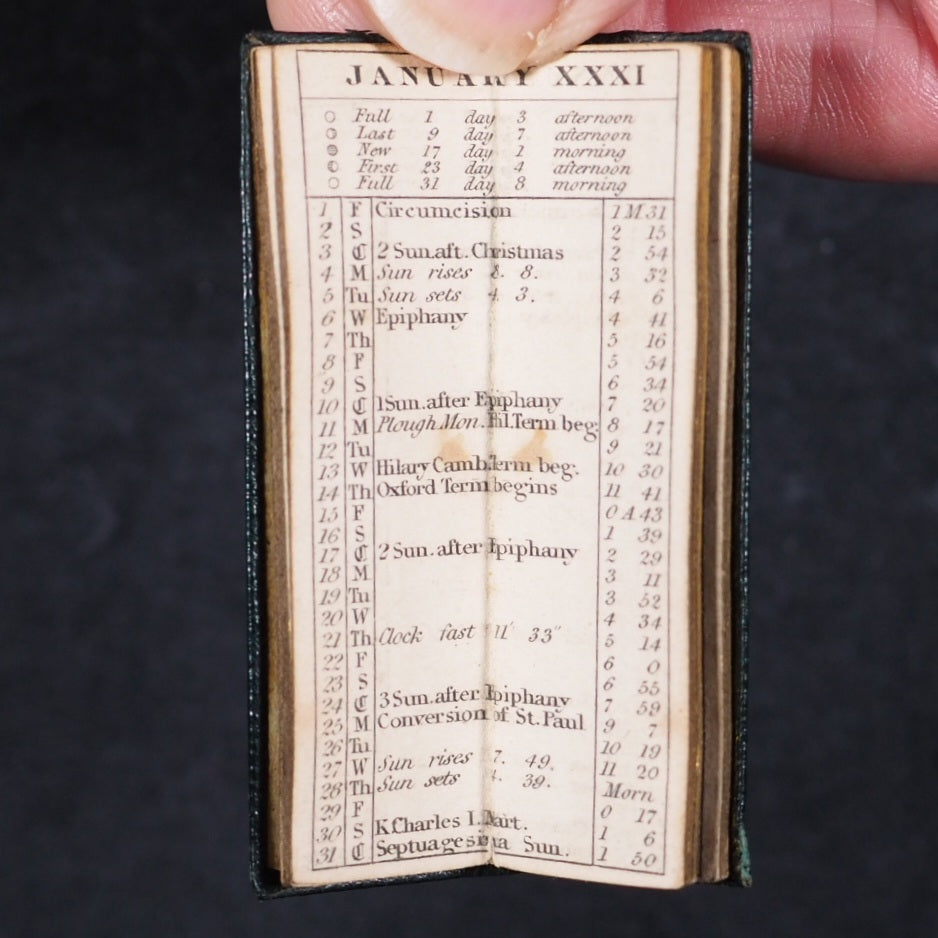 JANUARY XXXI
○ Full 1 day 3 afternoon
Last 9 day 7 afternoon
New 17 day 1 morning
First 23 day 4 afternoon
○ Full 31 day 8 morning
1 F Circumcision 1 M 31
2 S 2 15
3 C 2 Sun. aft. Christmas 2 54
4 M Sun rises 8. 8. 3 32
5 Tu Sun sets 4. 3. 4 6
6 W Epiphany 4 41
7 Th 5 16
8 F 5 54
9 S 6 34
10 C 1 Sun. after Epiphany 7 20
11 M Plough Mon. Hil. Term beg: 8 17
12 Tu 9 21
13 W Hilary Camb. Term beg: 10 30
14 Th Oxford Term begins 11 41
15 F 0 A 43
16 S 1 39
17 C 2 Sun. after Epiphany 2 29
18 M 3 11
19 Tu 3 52
20 W 4 34
21 Th Clock fast 11' 33" 5 14
22 F 6 0
23 S 6 55
24 C 3 Sun. after Epiphany 7 59
25 M Conversion of St. Paul 9 7
26 Tu 10 19
27 W Sun rises 7. 49. 11 20
28 Th Sun sets 4. 39. Morn
29 F 0 17
30 S K. Charles I. Mart. 1 6
31 C Septuagesima Sun. 1 50